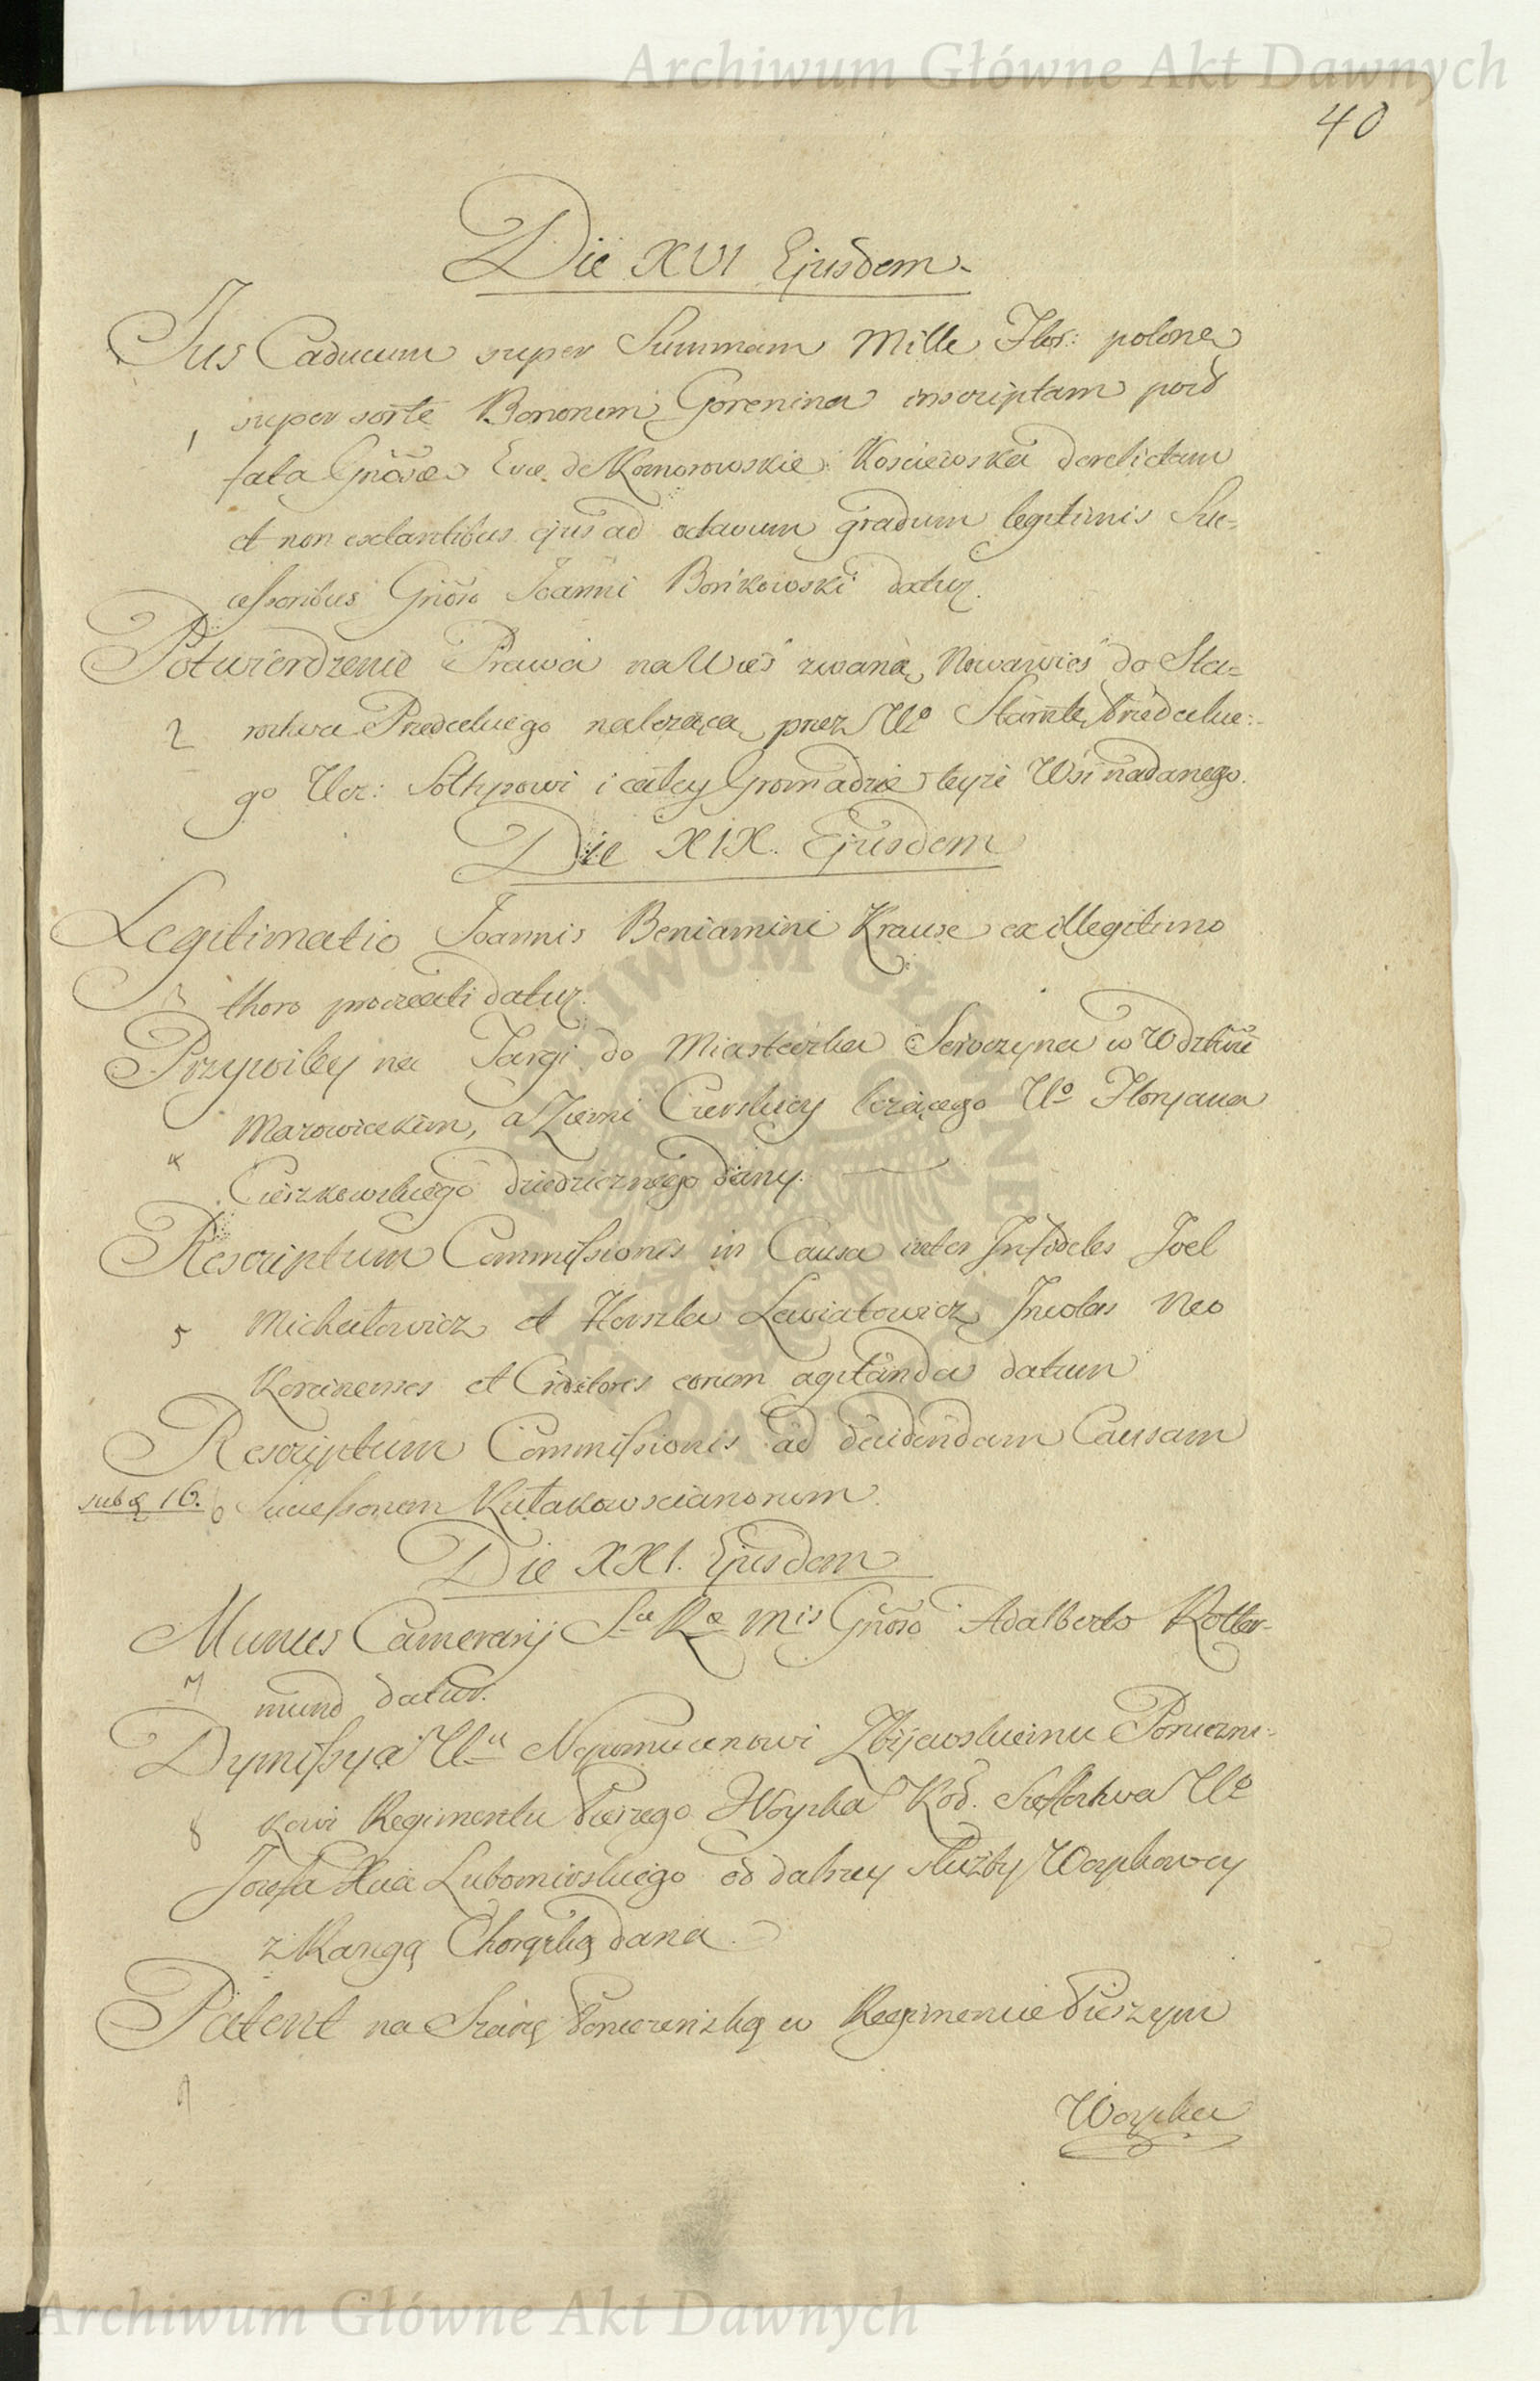 Archiwum Główne Akt Dawnych
40
Die XVI Ejusdem.
Jus Caducum super Summam Mille Flor: polon:
1 super sorte Bonorum Gorenina inscriptam post
fata Gnosæ Evæ de Komorowskie Kosciewska derelictam
et non exstantibus ejus ad octavum gradum legitimis Suc=
cessoribus Gnoso Joanni Bońkowski datur.
Potwierdzenie Prawa na Wieś zwaną Nowawieś do Sta=
2 rostwa Przedeckiego należącą przez Ur° Starostę Przedeckie:
go Ur: Sołtysowi i całey Gromadzie teyże Wsi nadanego.
Die XIX. Ejusdem
Legitimatio Joannis Beniamini Krause ex illegitimo
3 thoro procreati datur.
Przywiley na Targi do Miasteczka Seroczyna w Wdztwie
Mazowieckim, a Ziemi Czerskiey leżącego Ur° Floryana
4 Cieszkowskiego dziedzicznego dany.
Rescriptum Commissionis in Causa inter Infideles Joel
5 Michałowicz et Herszla Lewiatowicz Incolas Neo
Korcinenses et Creditores eorum agitanda datum
Rescriptum Commissionis ad decidendam Causam
sub 16. 6 Successorum Kułakowscianorum.
Die XXI. Ejusdem
Munus Camerarij Sæ Ræ Mtis Gnoso Adalberto Rotter-
7 mund datur.
Dymissya Ur. Nepomucenowi Zbijewskiemu Poruczni-
8 kowi Regimentu Pieszego Woyska Kod. Szefostwa Ur°
Jozefa Xcia Lubomirskiego od dalszey służby Woyskowey
z Rangą Chorążką dana.
Patent na Szarżę Poruczeńską w Regimencie Pieszym
9
Woyska
Archiwum Główne Akt Dawnych
ARCHIWUM GŁÓWNE AKT DAWNYCH